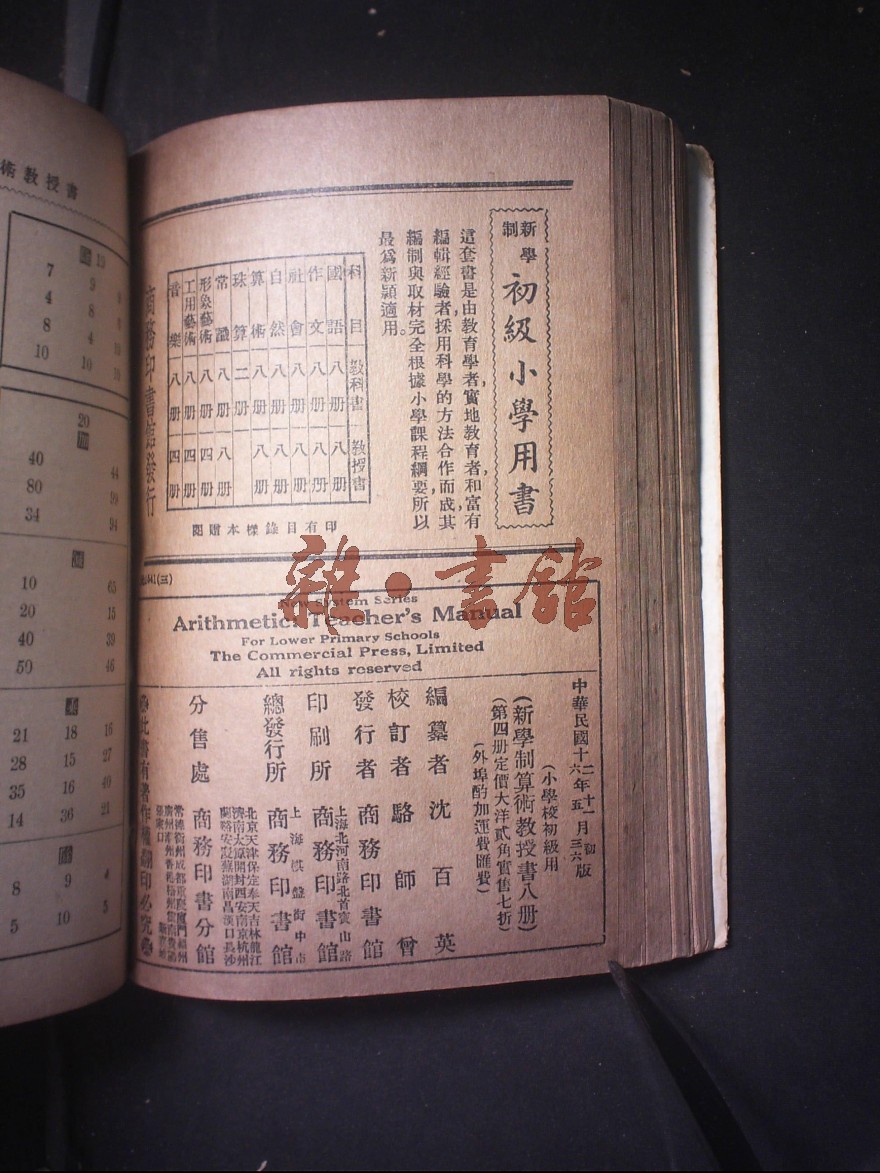 術教授書
19
7 9 9
4 8 8
8 4 10
10 10 18
20
40 44
80 99
34 94
10 65
20 15
40 39
50 46
21 18 16
28 15 27
35 16 40
14 36 21
8 9 4
5 10 5
新學制
初級小學用書
這套書是由教育學者,實地教育者和富有
編輯經驗者,採用科學的方法合作而成,其
編制與取材完全根據小學課程綱要,所以
最爲新穎適用。
科目 教科書 教授書
國語 八册 八册
作文 八册 八册
社會 八册 八册
自然 八册 八册
算術 八册 八册
珠算 二册
常識 八册 八册
形象藝術 八册 四册
工用藝術 八册 四册
音樂 八册 四册
商務印書館發行
印有目錄樣本贈閱
雜·書館
(三)
New System Series
Arithmetic: Teacher's Manual
For Lower Primary Schools
The Commercial Press, Limited
All rights reserved
中華民國十二年十一月初版
十六年五月三六版
(小學校初級用)
(新學制算術教授書八册)
(第四册定價大洋貳角實售七折)
(外埠酌加運費匯費)
編纂者 沈百英
校訂者 駱師曾
發行者 商務印書館
印刷所 上海北河南路北首寶山路 商務印書館
總發行所 上海棋盤街中市 商務印書館
分售處 北京天津保定奉天吉林龍江
濟南太原開封西安南京杭州
蘭谿安慶蕪湖南昌漢口長沙
商務印書分館
常德衡州成都重慶廈門福州
廣州潮州香港
張家口
此書有著作權翻印必究